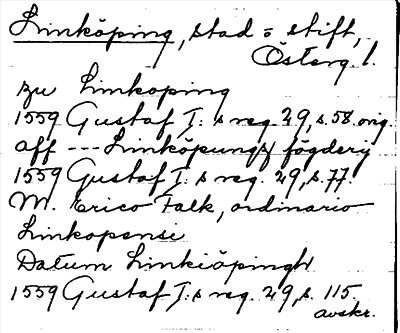 Linköping, stad o stift,
Österg. l.
zu Limkoping
1559 Gustaf I:s reg. 29, s. 58. orig.
aff --- Linköpungz fögderij
1559 Gustaf I:s reg. 29, s. 77.
M. Erico Falk, ordinario
Linkopensi
Datum Linkiöpingh
1559 Gustaf I:s reg. 29, s. 115.
avskr.